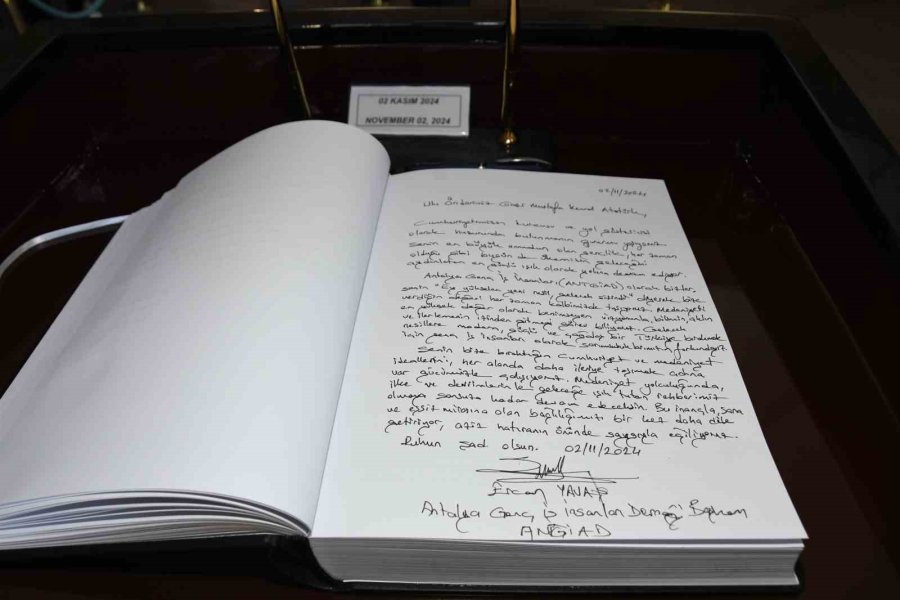 02 KASIM 2024
NOVEMBER 02, 2024
02/11/2024
Ulu Önderimiz Gazi Mustafa Kemal Atatürk,
Cumhuriyetimizin kurucusu ve yol göstericisi
olarak huzurunda bulunmanın gururunu yaşıyoruz.
Senin en büyük emanetin olan gençlik, her zaman
olduğu gibi bugün de ülkemizin geleceğini
aydınlatan en güçlü ışık olarak yoluna devam ediyor.
Antalya Genç İş İnsanları (ANTGİAD) olarak bizler,
senin "Ey yükselen yeni nesil, gelecek sizindir" diyerek bize
verdiğin değeri her zaman kalbimizde taşıyoruz. Medeniyeti
en yüksek değer olarak benimseyen vizyonunla, bilimin, aklın
ve ilerlemenin izinden gitmeyi görev biliyoruz. Gelecek
nesillere modern, güçlü ve çağdaş bir Türkiye bırakmak
için genç iş insanları olarak sorumluluklarımızın farkındayız.
Senin bize bıraktığın Cumhuriyet ve medeniyet
ideallerini, her alanda daha ileriye taşımak adına
var gücümüzle çalışıyoruz. Medeniyet yolculuğunda,
ilke ve devrimlerinle geleceğe ışık tutan rehberimiz
olmaya sonsuza kadar devam edeceksin. Bu inançla, sana
ve eşsiz mirasına olan bağlılığımızı bir kez daha dile
getiriyor, aziz hatıranın önünde saygıyla eğiliyoruz.
Ruhun şad olsun. 02/11/2024
Ercan YAVAŞ
Antalya Genç İş İnsanları Derneği Başkanı
ANGİAD